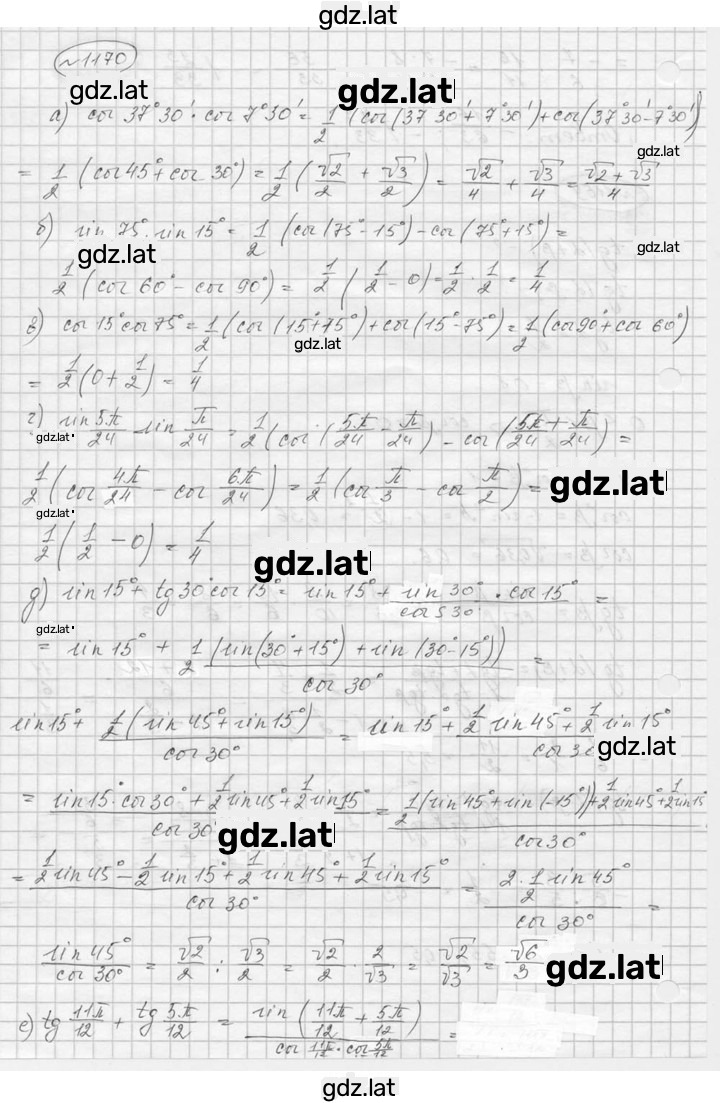 gdz.lat
№1170
gdz.lat gdz.lat
а) cos 37°30' · cos 7°30' = 1/2 (cos(37°30' + 7°30') + cos(37°30' - 7°30')
gdz.lat
= 1/2 (cos 45° + cos 30°) = 1/2 (√2/2 + √3/2) = √2/4 + √3/4 = (√2 + √3)/4
б) sin 75° · sin 15° = 1/2 (cos(75° - 15°) - cos(75° + 15°) =
gdz.lat gdz.lat
1/2 (cos 60° - cos 90°) = 1/2 (1/2 - 0) = 1/2 · 1/2 = 1/4
в) cos 15° cos 75° = 1/2 (cos(15° + 75°) + cos(15° - 75°) = 1/2 (cos 90° + cos 60°)
gdz.lat
= 1/2 (0 + 1/2) = 1/4
г) sin 5π/24 · sin π/24 = 1/2 (cos (5π/24 - π/24) - cos (5π/24 + π/24) =
gdz.lat
1/2 (cos 4π/24 - cos 6π/24) = 1/2 (cos π/3 - cos π/2) = gdz.lat
gdz.lat
1/2 (1/2 - 0) = 1/4
gdz.lat
д) sin 15° + tg 30° cos 15° = sin 15° + sin 30°/cos 30 · cos 15° =
gdz.lat
= sin 15° + 1/2 (sin(30° + 15°) + sin(30° - 15°))/cos 30° =
sin 15° + 1/2 (sin 45° + sin 15°)/cos 30° = sin 15° + (1/2 sin 45° + 1/2 sin 15°)/cos 30
gdz.lat
= (sin 15° · cos 30° + 1/2 sin 45° + 1/2 sin 15°)/cos 30° = (1/2 (sin 45° + sin(-15°)) + 1/2 sin 45° + 1/2 sin 15°)/cos 30°
gdz.lat
= (1/2 sin 45° - 1/2 sin 15° + 1/2 sin 45° + 1/2 sin 15°)/cos 30° = (2 · 1/2 sin 45°)/cos 30° =
sin 45°/cos 30° = √2/2 : √3/2 = √2/2 · 2/√3 = √2/√3 = √6/3 gdz.lat
е) tg 11π/12 + tg 5π/12 = sin (11π/12 + 5π/12)/(cos 11π/12 · cos 5π/12) =
gdz.lat